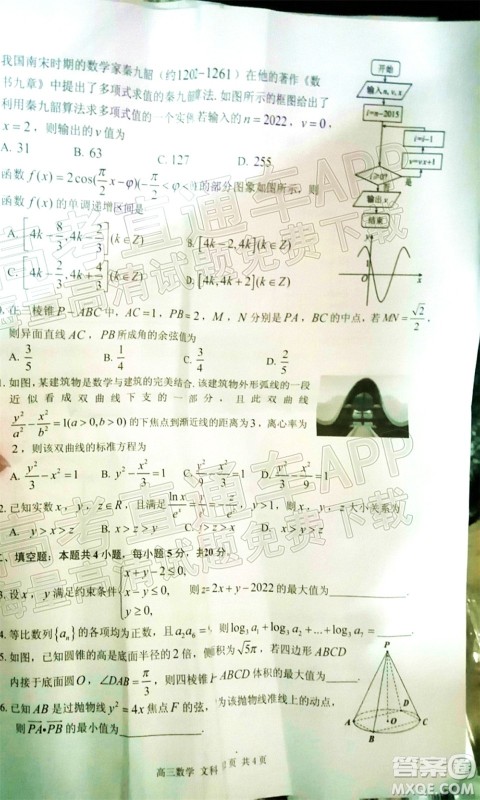 我国南宋时期的数学家秦九韶（约1202-1261）在他的著作《数
书九章》中提出了多项式求值的秦九韶算法.如图所示的框图给出了
利用秦九韶算法求多项式值的一个实例若输入的n=2022，v=0，
x=2，则输出的v值为
A. 31 B. 63 C. 127 D. 255
开始
输入n,v,x
i=n-2015
i=i-1
v=vx+1
i≥0?
是
结束
函数 f(x)=2cos(π/2 x-φ)(-π/2<φ< 的部分图象如图所示，则
函数 f(x) 的单调递增区间是
A. [4k-8/3,4k-2/3](k∈Z) B. [4k-2,4k](k∈Z)
C. [4k-2/3,4k+4/3](k∈Z) D. [4k,4k+2](k∈Z)
y
x
在三棱锥P-ABC中，PA=1，PB=2，M，N分别是PA，BC的中点，若MN=√2/2，
则异面直线AC，PB所成角的余弦值为
A. 3/5 B. 1/4 C. 3/4 D. 2/5
1.如图，某建筑物是数学与建筑的完美结合.该建筑物外形弧线的一段
近似看成双曲线下支的一部分，且此双曲线
y²/a²-x²/b²=1(a>0,b>0)的下焦点到渐近线的距离为3，离心率为
2，则该双曲线的标准方程为
A. y²/3-x²=1 B. y²-x²/3=1 C. y²/9-x²/3=1 D. y²/3-x²/9=1
2.已知实数x，y，z∈R，且满足 lnx/eˣ=y/eʸ=-z/eᶻ，y>1，则x，y，z大小关系为
A. y>x>z B. x>y>z C. y>z>x D. x>z>y
二、填空题：本题共4小题，每小题5分，共20分.
3.设x，y满足约束条件{x+y-2≤0, x-y≤0, y≥0, 则z=2x+y-2022的最大值为
4.等比数列{aₙ}的各项均为正数，且
则log₃a₁+log₃a₂+…+log₃
5.如图，已知圆锥的高是底面半径的2倍，侧面积为√5π，若四边形ABCD
内接于底面圆，∠DAB=π/3，则四棱锥P-ABCD体积的最大值为
6.已知AB是过抛物线y²=4x焦点F的弦，P为该抛物线准线上的动点，
则PA•PB的最小值为
P
A
B
C
D
O
高三数学 文科 页 共4页
高考直通车APP
海量高清试题免费下载
高考直通车APP
海量高清试题免费下载
答案圈
MXQE.COM